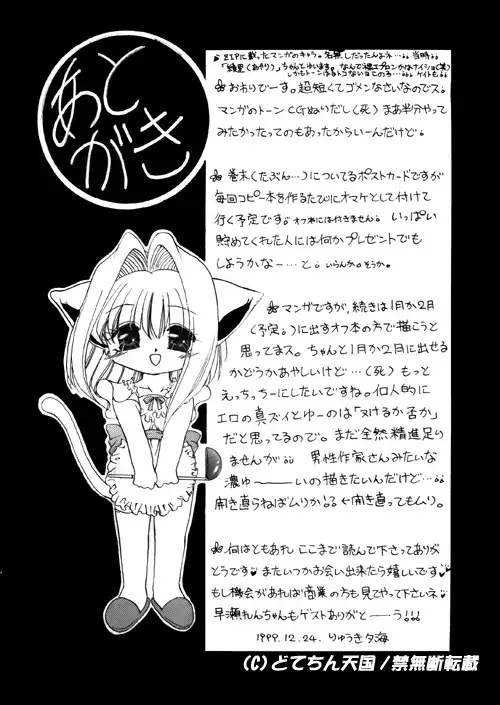 あとがき
ZIPに載ったマンガのキャラ。名無しだったんよネ…当時
「綾里(あやり)」ちゃんとゆいます。なんで裸エプロンかはナイショ(笑)
しかもトーンはるトコないヨこのころ…ゲイトも
おわりでーす。超短くてゴメンなさいなのでス。
マンガのトーンCGぬりだし(死)まあ半分やって
みたかったってのもあったからいーんだけど。
巻末(たぶん…)についてるポストカードですが
毎回コピー本を作るたびにオマケとして付けて
行く予定です。オフ本には付きません。いっぱい
貯めてくれた人には何かプレゼントでも
しようかなー…と。いらんか。そうか。
マンガですが、続きは1月か2月
(予定。)に出すオフ本の方で描こうと
思ってまス。ちゃんと1月か2月に出せる
かどうかあやしいけど…(死)もっと
えっちっちーにしたいですね。個人的に
エロの真ズイとゆーのは「ヌけるか否か」
だと思ってるので。まだ全然精進足り
ませんが。男性作家さんみたいな
濃ゆ〜〜いの描きたいんだけど…
開き直らねばムリか！←開き直ってもムリ。
何はともあれここまで読んで下さってありが
とうです♥またいつかお会い出来たら嬉しいです♥
もし機会があれば商業の方も見てやって下さいネ
早瀬れんちゃんもゲストありがと――う!!!
1999.12.24. りゅうき夕海
(C) どてちん天国 / 禁無断転載